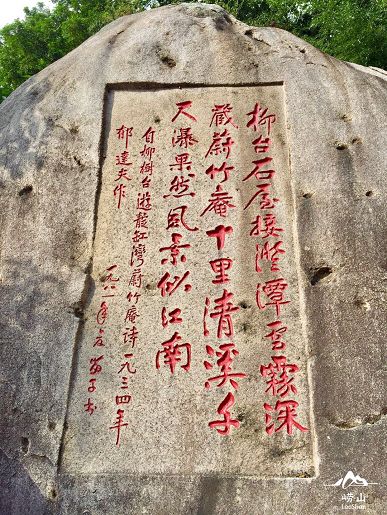 柳台石屋接澄潭雲霧深
藏蔚竹庵十里清溪千
尺瀑果然風景似江南
自柳樹台遊靛缸灣蔚竹庵詩一九三四年
郁達夫作
一九八一年夏
崂山
LaoShan